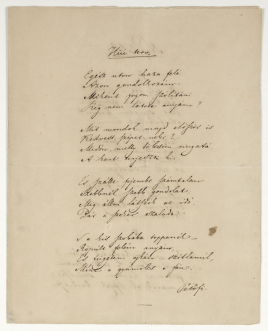 Egész uton haza felé
Azon gondolkozám:
Miként fogom szólítani
Rég nem látott anyám?

Mit mondok majd először is
Kedvest, szépet neki?
Midőn, mely bölcsőm ringatá,
A kart terjeszti ki.

És jutott eszembe számtalan
Szebbnél szebb gondolat,
Mig állni látszék az idő,
Bár a szekér szaladt.

S a kis szobába toppanék..
Röpült felém anyám..
És én csüggtem ajkán - szótlanúl..
Mint a gyümölcs a fán.

Petőfi